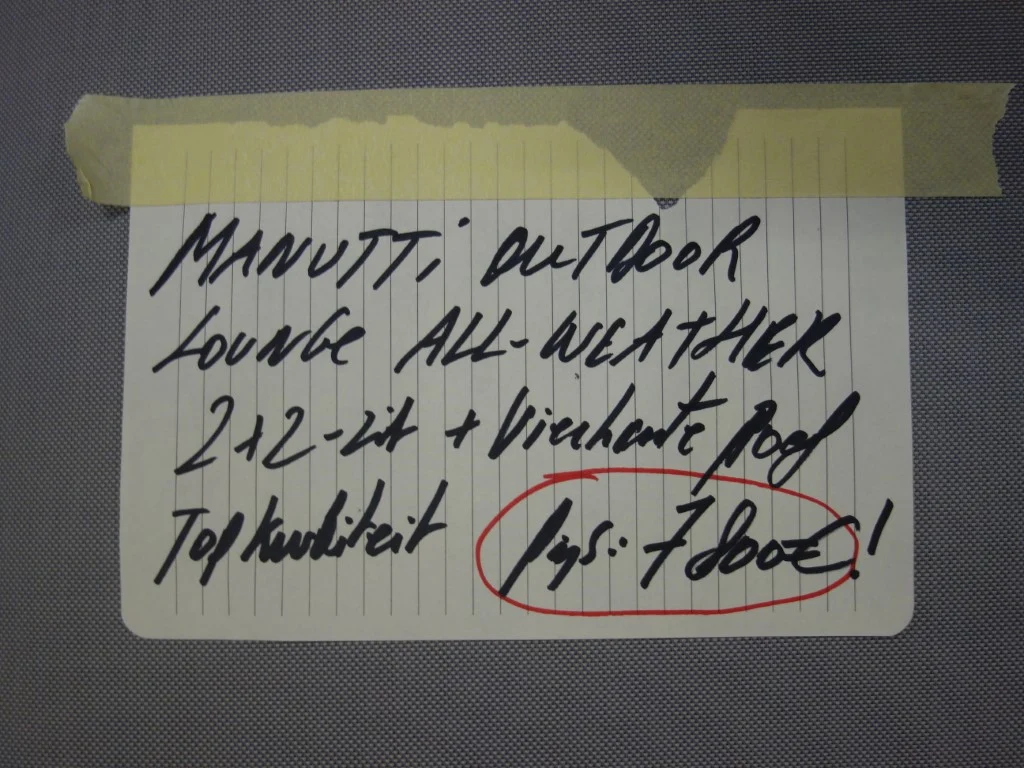 MANUTTi OUTDOOR
LOUNGE ALL-WEATHER
2+2-zit + Vierkante Poef
Topkwaliteit Prijs: 7800€!